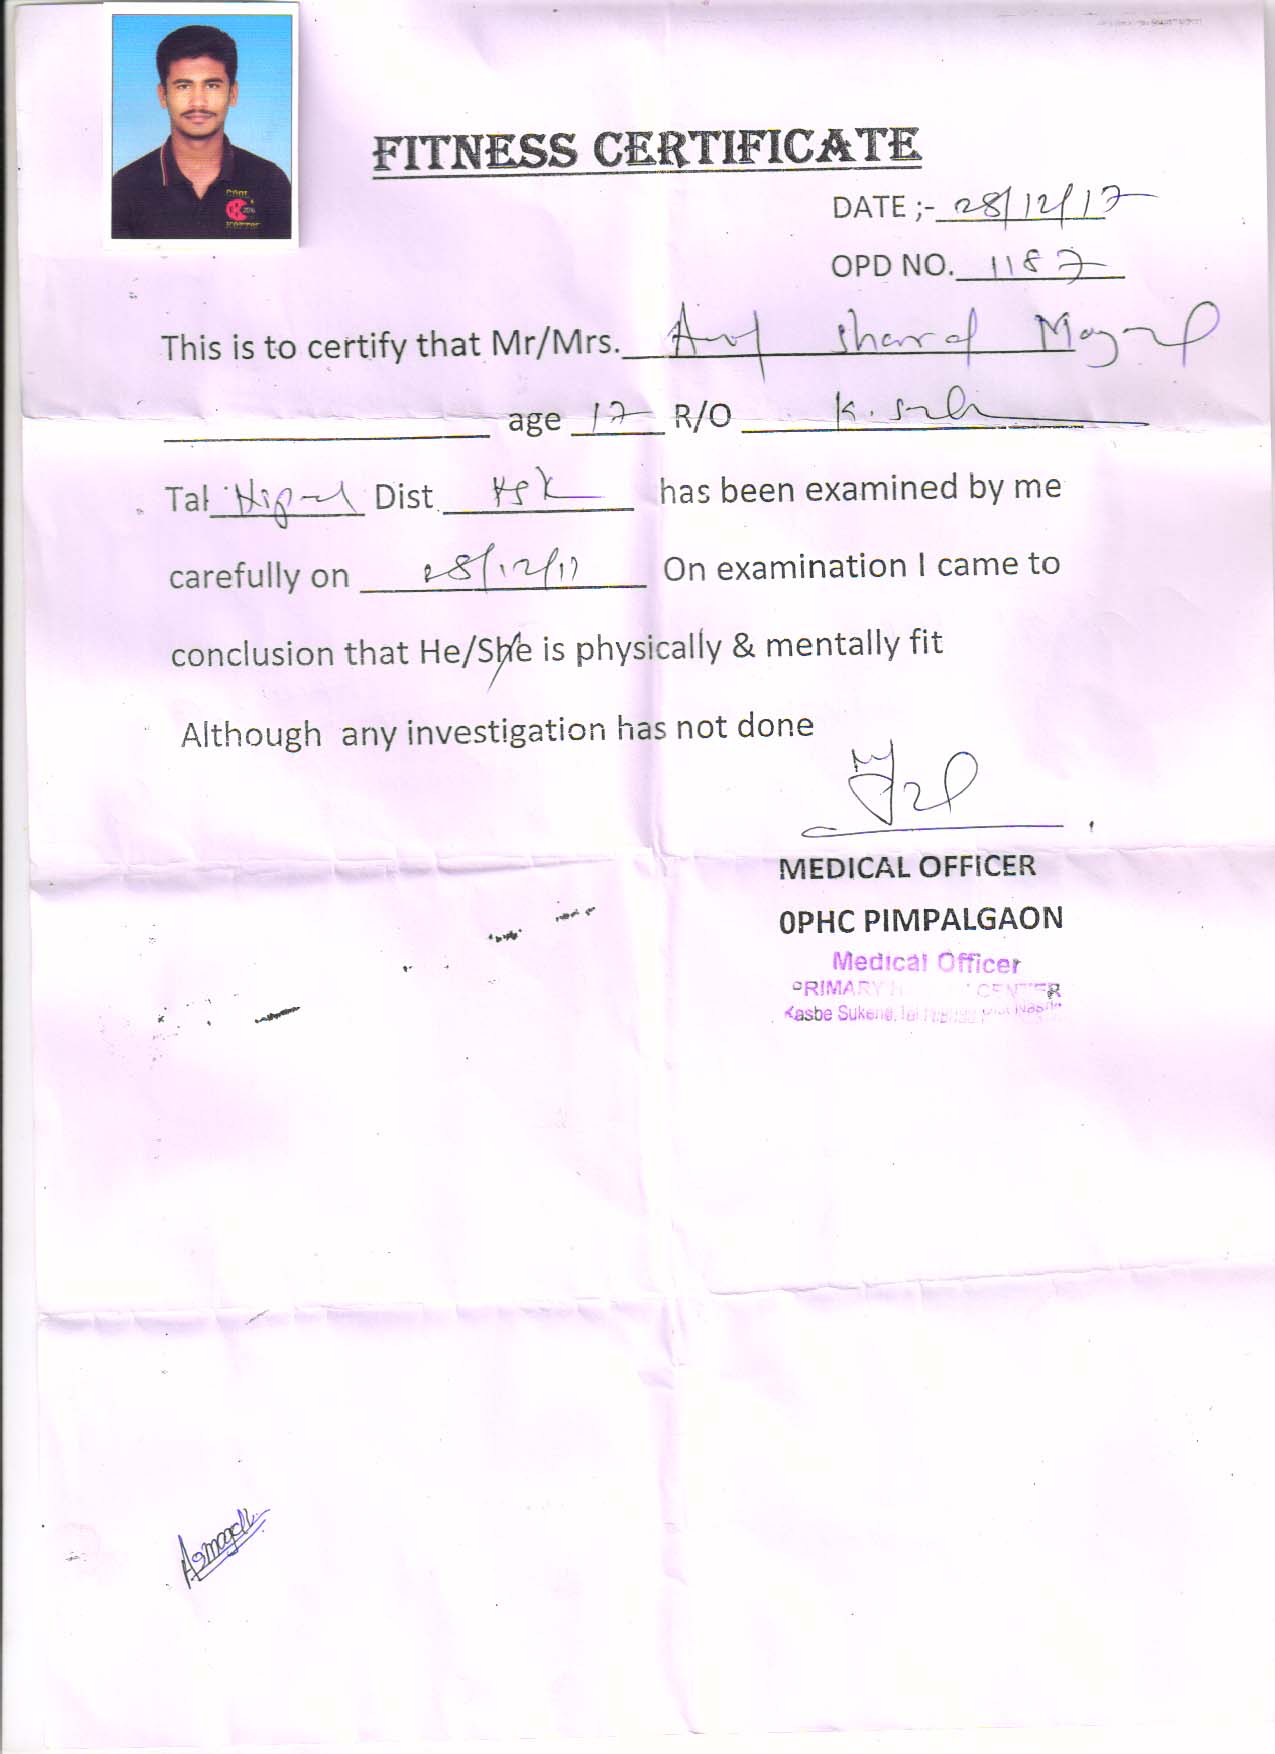 FITNESS CERTIFICATE
DATE ;- 28/12/17
OPD NO. 1187
This is to certify that Mr/Mrs. Sharad
age 17 R/O
Tal Dist has been examined by me
carefully on 28/12/17 On examination I came to
conclusion that He/She is physically & mentally fit
Although any investigation has not done
MEDICAL OFFICER
0PHC PIMPALGAON
Medical Officer
PRIMARY CENTER
Kasbe Sukene,